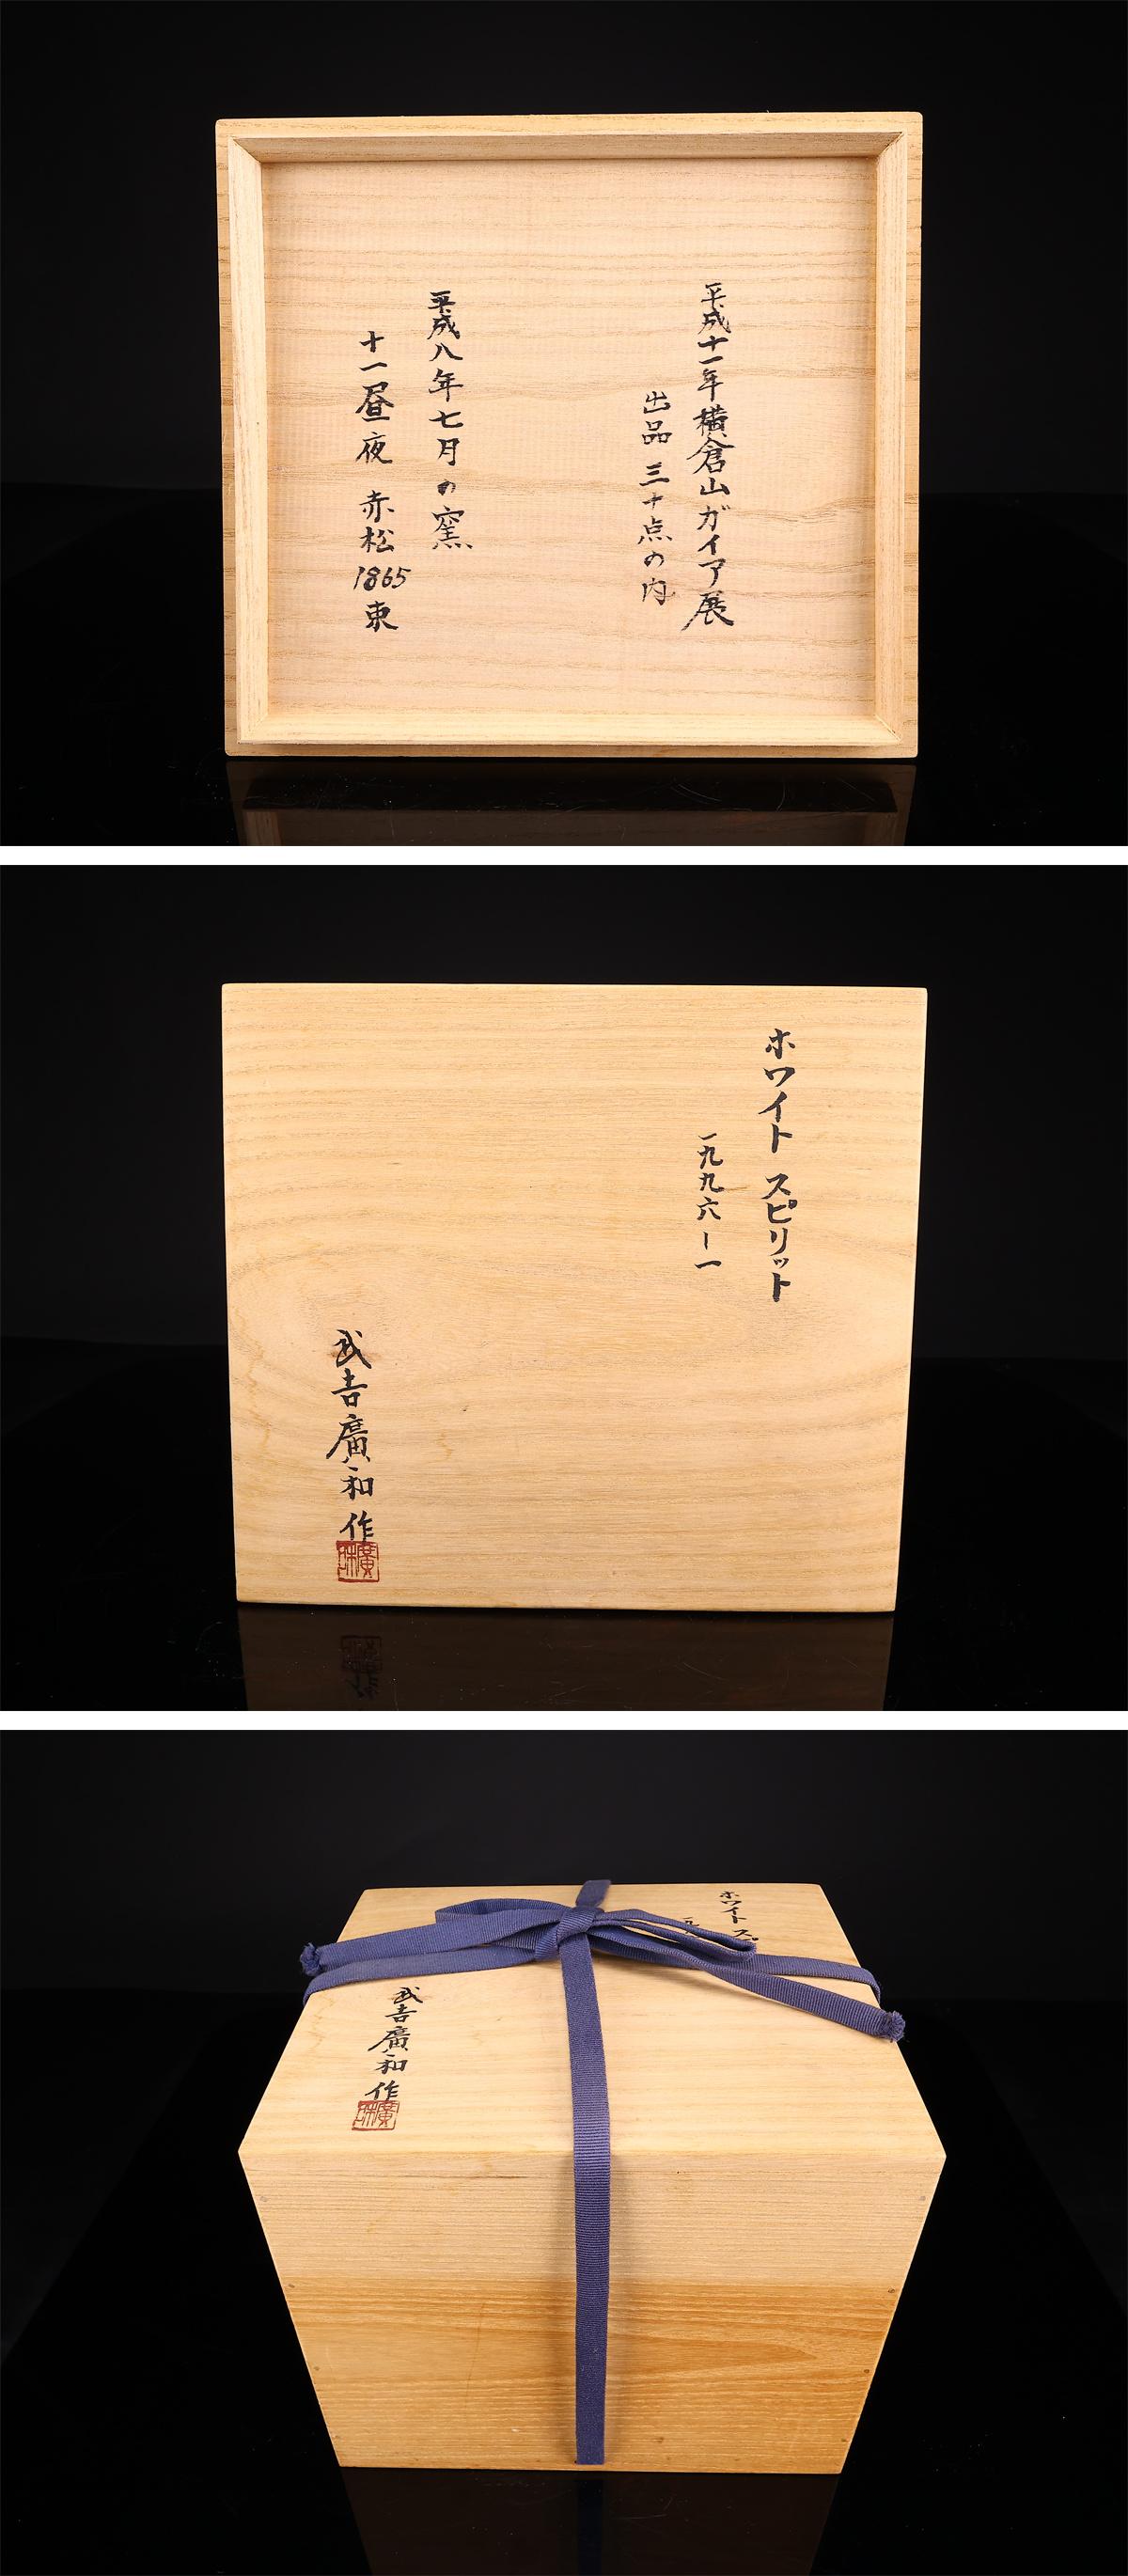 平成十一年横倉山ガイア展
出品 三十点の内
平成八年七月の窯
十一昼夜 赤松 1865 束
ホワイト スピリット
一九九六-一
武吉廣和 作
廣味
ホワイト ス
一九
武吉廣和 作
廣味